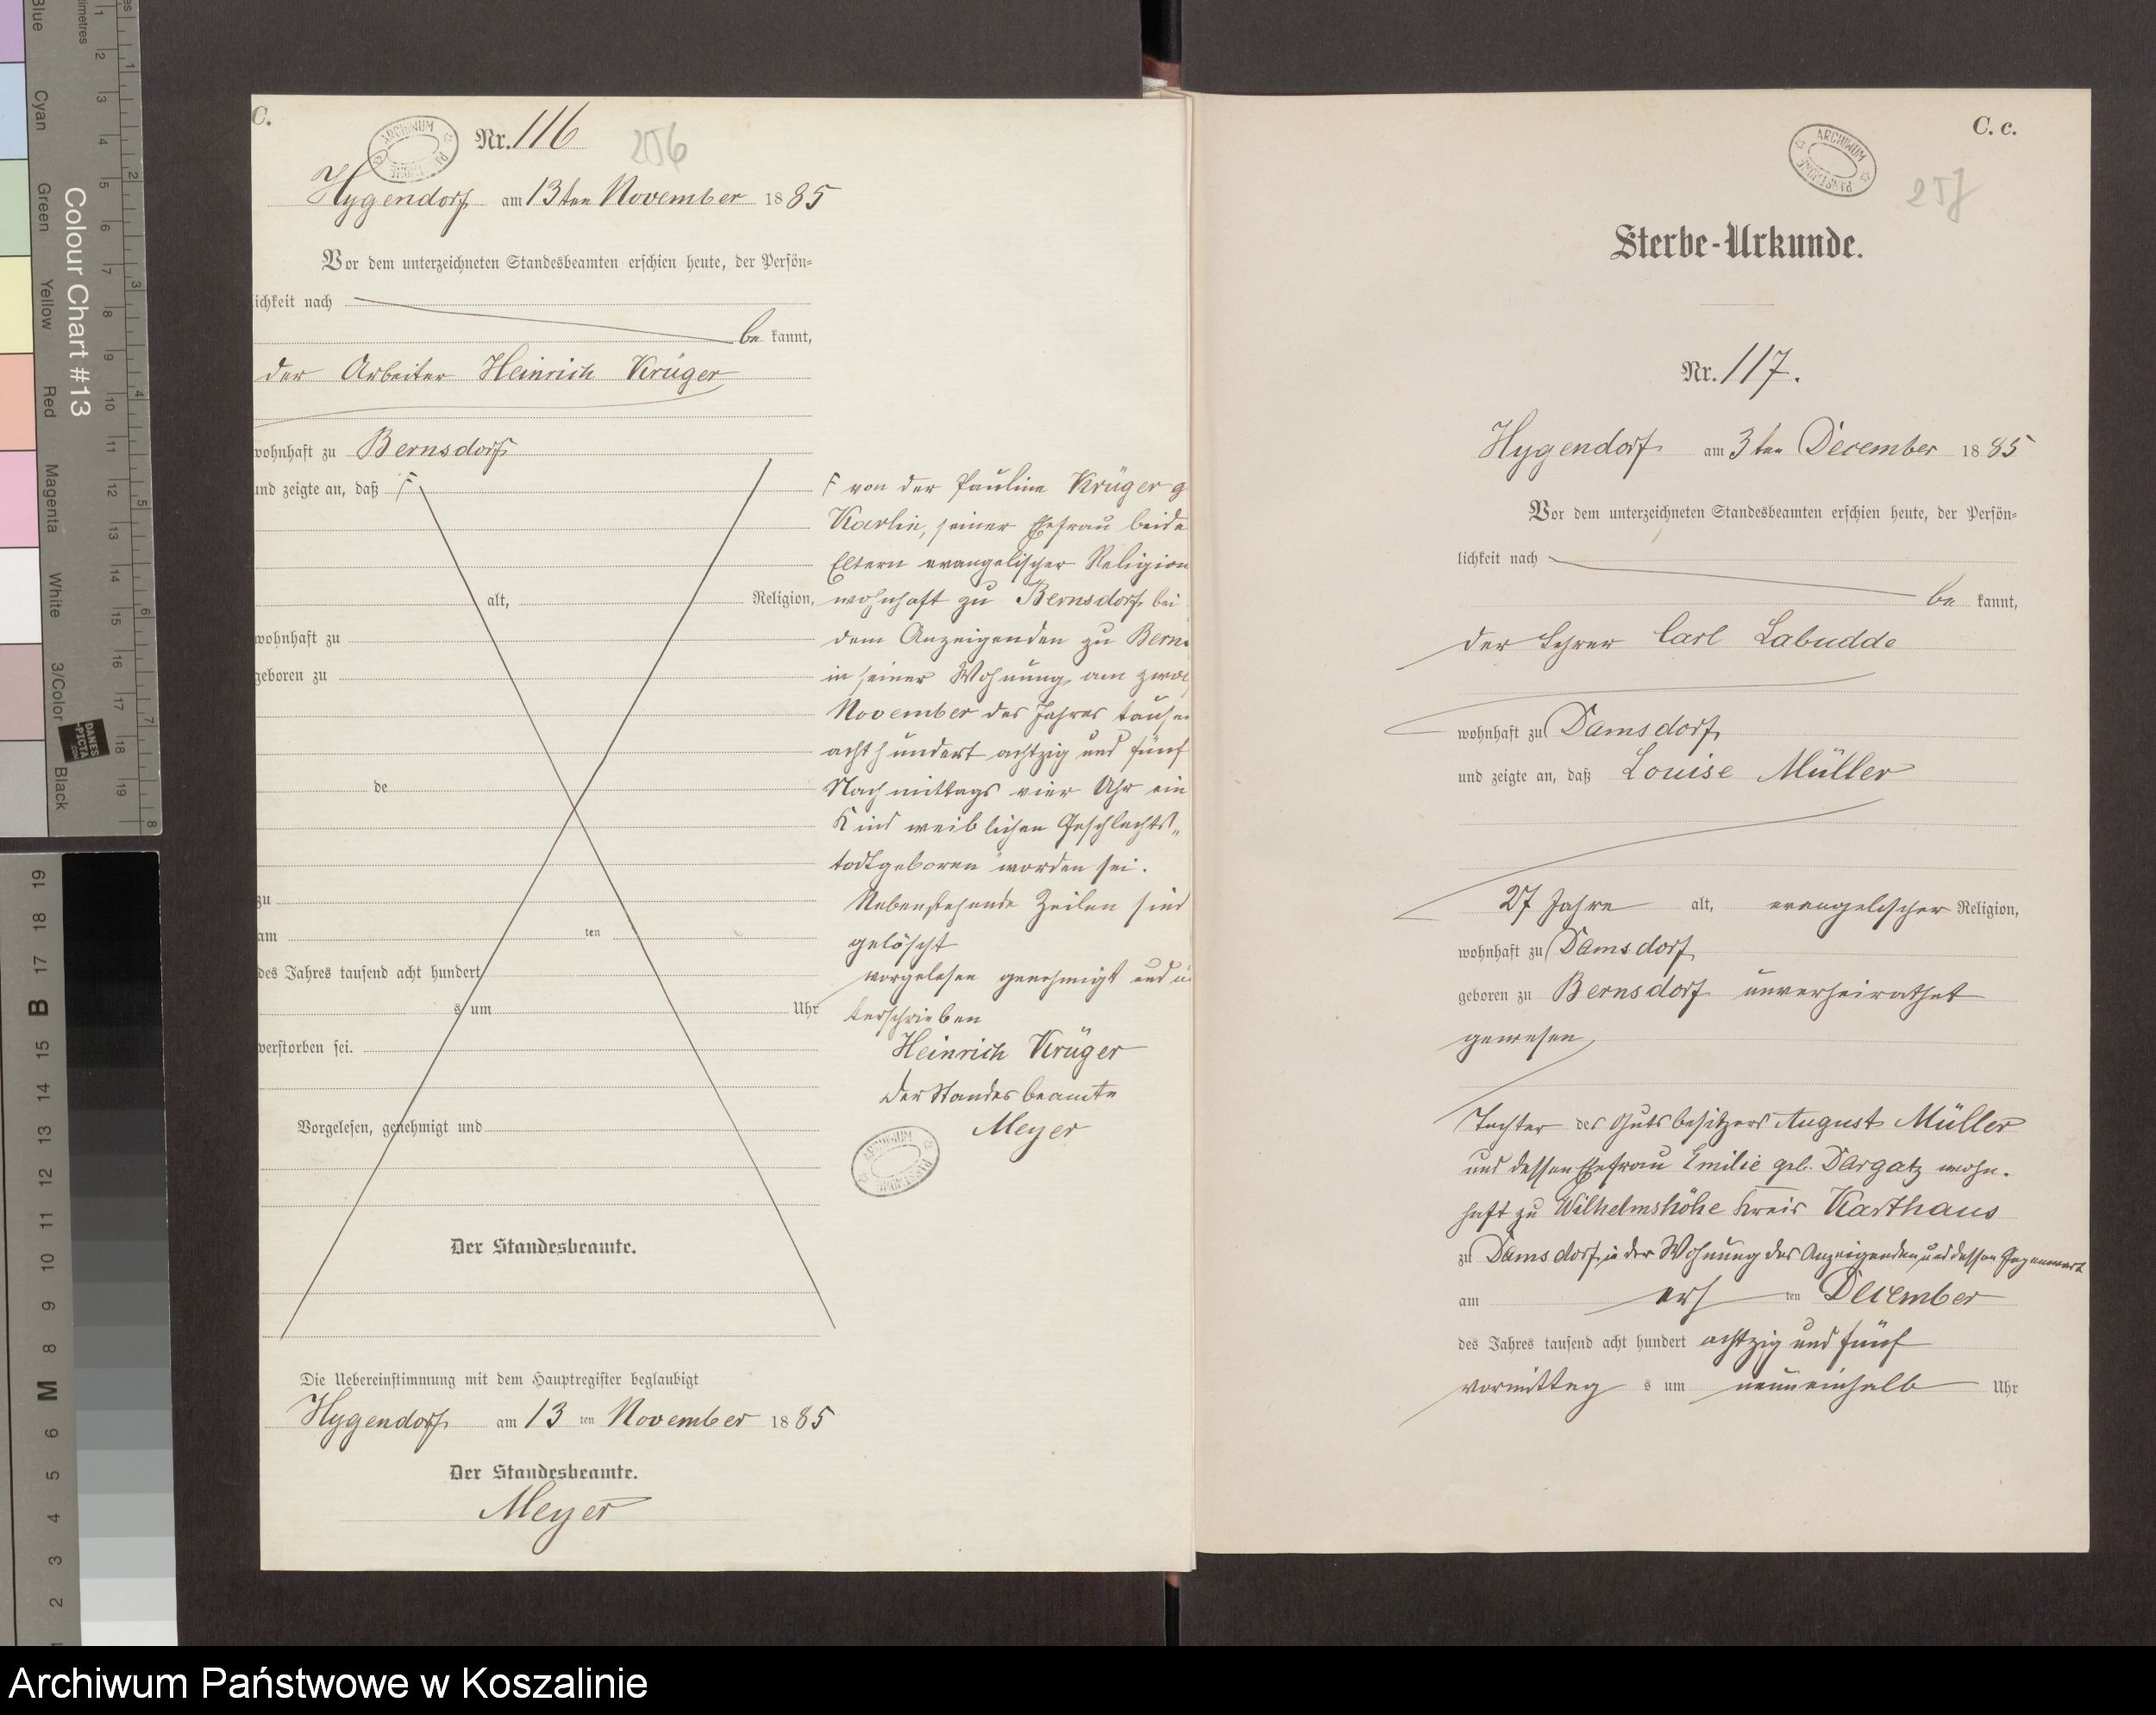 C.
ARCHIWUM PAŃSTWOWE
Nr. 116
256
Hygendorf am 13ten November 1885
Vor dem unterzeichneten Standesbeamten erschien heute, der Persön=
lichkeit nach
be kannt,
der Arbeiter Heinrich Krüger
wohnhaft zu Bernsdorf
und zeigte an, daß F
alt, Religion,
wohnhaft zu
geboren zu
de
zu
am ten
des Jahres tausend acht hundert
s um Uhr
verstorben sei.
Vorgelesen, genehmigt und
Der Standesbeamte.
F von der Pauline Krüger g
Karlin, seiner Ehefrau beide
Eltern evangelischer Religion
wohnhaft zu Bernsdorf bei
dem Anzeigenden zu Berns
in seiner Wohnung am zwöl
November des Jahres tausen
achthundert achtzig und fünf
Nachmittags vier Uhr ein
Kind weiblichen Geschlechts,,
todtgeboren worden sei.
Nebenstehende Zeilen sind
gelöscht
vorgelesen genehmigt und u
terschrieben
Heinrich Krüger
Der Standesbeamte
Meyer
ARCHIWUM PAŃSTWOWE
Die Uebereinstimmung mit dem Hauptregister beglaubigt
Hygendorf am 13 ten November 1885
Der Standesbeamte.
Meyer
C. c.
ARCHIWUM PAŃSTWOWE
257
Sterbe-Urkunde.
Nr. 117.
Hygendorf am 3ten December 1885
Vor dem unterzeichneten Standesbeamten erschien heute, der Persön=
lichkeit nach
be kannt,
der Lehrer Carl Labudde
wohnhaft zu Damsdorf
und zeigte an, daß Louise Müller
27 Jahre alt, evangelischer Religion,
wohnhaft zu Damsdorf
geboren zu Bernsdorf unverheirathet
gewesen,
Tochter des Gutsbesitzers August Müller
und dessen Ehefrau Emilie geb. Dargatz wohn-
haft zu Wilhelmshöhe Kreis Karthaus
zu Damsdorf, in der Wohnung des Anzeigenden, und dessen Gegenwart
am ers ten December
des Jahres tausend acht hundert achtzig und fünf
vormittag s um neuneinhalb Uhr
Colour Chart #13
Blue
Cyan
Green
Yellow
Red
Magenta
White
3/Color
Black
DANES
PICTA
.COM
1 2 3 4 5 6 7 8 9 10 11 12 13 14 15 16 17 18 19
1 2 3 4 5 6 7 8
19 18 17 B 16 15 14 13 12 11 10 9 8 M 6 5 4 3 2 1
Archiwum Państwowe w Koszalinie